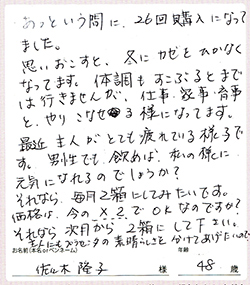 あっという間に、26回購入になって
ました。
思いおこすと、冬にカゼをひかなく
なってます。体調もすこぶるとまで
は行きませんが、仕事・家事・育事
と、やりこなせる様になってます。
最近主人がとても疲れている様子で
す。男性でも、飲めば、私の様に
元気になれるのでしょうか?
それなら、毎月2箱にしてみたいです。
価格は、今の×2でOKなのですか?
それなら次月から2箱にして下さい。
主人にもプラセンタの素晴らしさを分けてあげたいので
お名前(本名orペンネーム) 年齢
佐々木隆子 様 48 歳